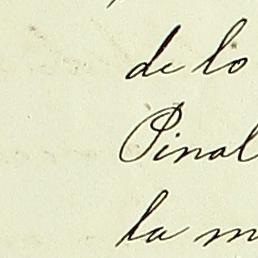 de lo
Pinal
la m